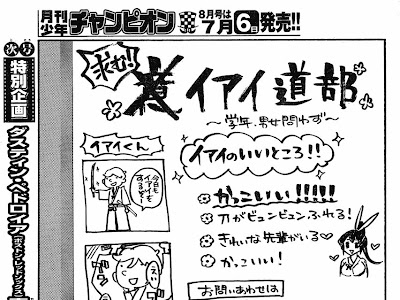 月刊少年チャンピオン8月号は7月6日発売!!
次号
特別企画
ダスティン・ペドロイア
求む!!
イアイ道部
〜学年、男女問わず〜
イアイのいいところ!!
かっこいい!!!!!
刀がビュンビュンふれる!
きれいな先輩がいる♡
かっこいい!
お問いあわせは
イアイくん
今日も
イアイを
するぞ!